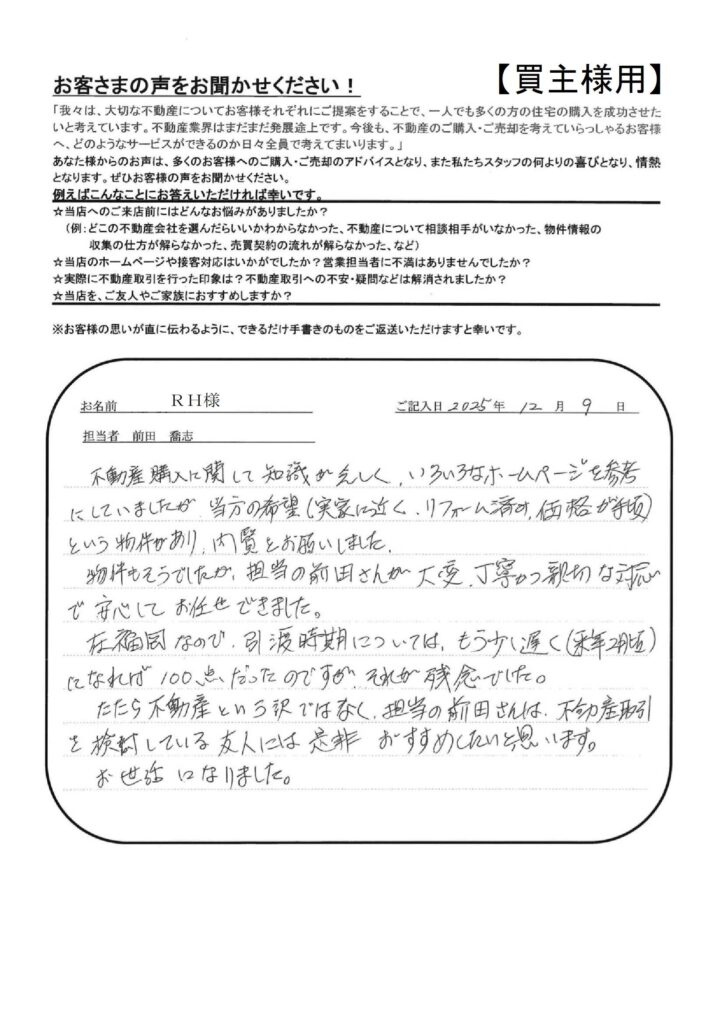 お客さまの声をお聞かせください！
【買主様用】
「我々は、大切な不動産についてお客様それぞれにご提案をすることで、一人でも多くの方の住宅の購入を成功させた
いと考えています。不動産業界はまだまだ発展途上です。今後も、不動産のご購入・ご売却を考えていらっしゃるお客様
へ、どのようなサービスができるのか日々全員で考えてまいります。」
あなた様からのお声は、多くのお客様へのご購入・ご売却のアドバイスとなり、また私たちスタッフの何よりの喜びとなり、情熱
となります。ぜひお客様の声をお聞かせください。
例えばこんなことにお答えいただければ幸いです。
☆当店へのご来店前にはどんなお悩みがありましたか？
（例：どこの不動産会社を選んだらいいかわからなかった、不動産について相談相手がいなかった、物件情報の
収集の仕方が解らなかった、売買契約の流れが解らなかった、など）
☆当店のホームページや接客対応はいかがでしたか？営業担当者に不満はありませんでしたか？
☆実際に不動産取引を行った印象は？不動産取引への不安・疑問などは解消されましたか？
☆当店を、ご友人やご家族におすすめしますか？
※お客様の思いが直に伝わるように、できるだけ手書きのものをご返送いただけますと幸いです。
お名前 ＲＨ様 ご記入日 2025年 12 月 9 日
担当者 前田 喬志
不動産購入に関して知識が乏しく、いろいろなホームページを参考
にしていましたが、当方の希望(実家に近く、リフォーム済み、価格が手頃)
という物件があり、内覧をお願いしました。
物件もそうでしたが、担当の前田さんが大変、丁寧かつ親切な対応
で安心してお任せできました。
在福岡なので、引渡時期については、もう少し遅く(来年2月頃)
になれば100点だったのですが、それが残念でした。
たたら不動産という訳ではなく、担当の前田さんは、不動産取引
を検討している友人には是非おすすめしたいと思います。
お世話になりました。